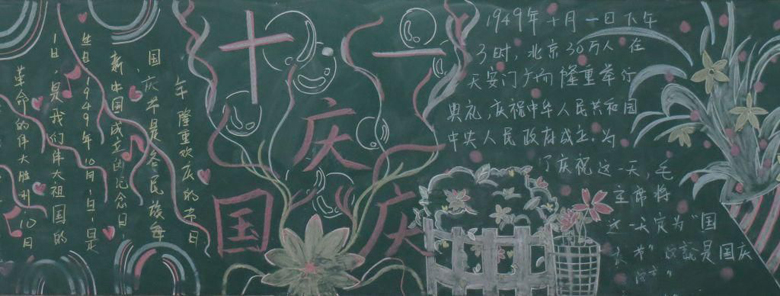 革命的伟大胜利,10月
1日,是我们伟大祖国的
生日1949年10月1日是
新中国成立的纪念日
国庆节是各民族每
年隆重欢庆的节日
十一
庆
国庆
1949年十月一日下午
3时,北京30万人在
天安门广场隆重举行
典礼,庆祝中华人民共和国
中央人民政府成立,为
了庆祝这一天,毛
主席将
这一天定为“国
是国庆